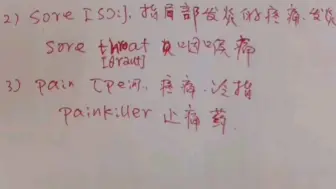 2) sore [sɔ:], 指局部发炎的疼痛, 发炎
sore throat 咽喉痛
[θrəut]
3) pain [pein], 疼痛, 泛指
painkiller 止痛药